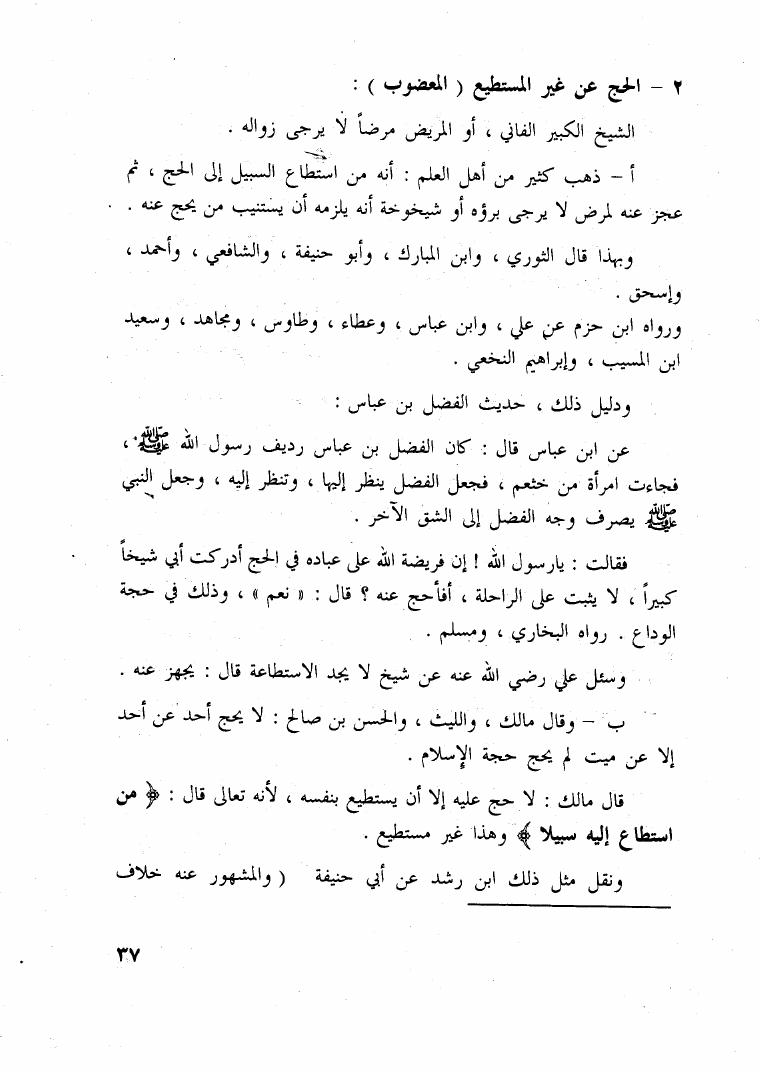 ٢ – الحج عن غير المستطيع ( المعضوب ) :
الشيخ الكبير الفاني ، أو المريض مرضاً لا يرجى زواله .
أ – ذهب كثير من أهل العلم : أنه من استطاع السبيل إلى الحج ، ثم
عجز عنه لمرض لا يرجى برؤه أو شيخوخة أنه يلزمه أن يستنيب من يحج عنه .
وبهذا قال الثوري ، وابن المبارك ، وأبو حنيفة ، والشافعي ، وأحمد ،
وإسحق .
ورواه ابن حزم عن علي ، وابن عباس ، وعطاء ، وطاوس ، ومجاهد ، وسعيد
ابن المسيب ، وإبراهيم النخعي .
ودليل ذلك ، حديث الفضل بن عباس :
عن ابن عباس قال : كان الفضل بن عباس رديف رسول الله ﷺ ،
فجاءت امرأة من خثعم ، فجعل الفضل ينظر إليها ، وتنظر إليه ، وجعل النبي
ﷺ يصرف وجه الفضل إلى الشق الآخر .
فقالت : يارسول الله ! إن فريضة الله على عباده في الحج أدركت أبي شيخاً
كبيراً ، لا يثبت على الراحلة ، أفأحج عنه ؟ قال : « نعم » ، وذلك في حجة
الوداع . رواه البخاري ، ومسلم .
وسئل علي رضي الله عنه عن شيخ لا يجد الاستطاعة قال : يجهز عنه .
ب – وقال مالك ، والليث ، والحسن بن صالح : لا يحج أحد عن أحد
إلا عن ميت لم يحج حجة الإسلام .
قال مالك : لا حج عليه إلا أن يستطيع بنفسه ، لأنه تعالى قال : ﴿ من
استطاع إليه سبيلا ﴾ وهذا غير مستطيع .
ونقل مثل ذلك ابن رشد عن أبي حنيفة ( والمشهور عنه خلاف
٣٧